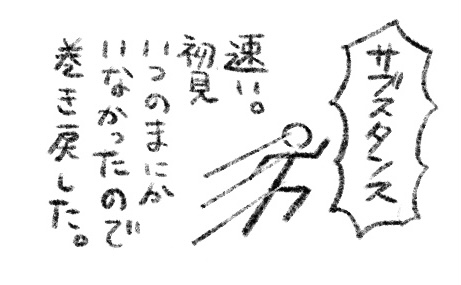 サブスタンス
速い。
初見
いつのまにか
いなかったので
巻き戻した。